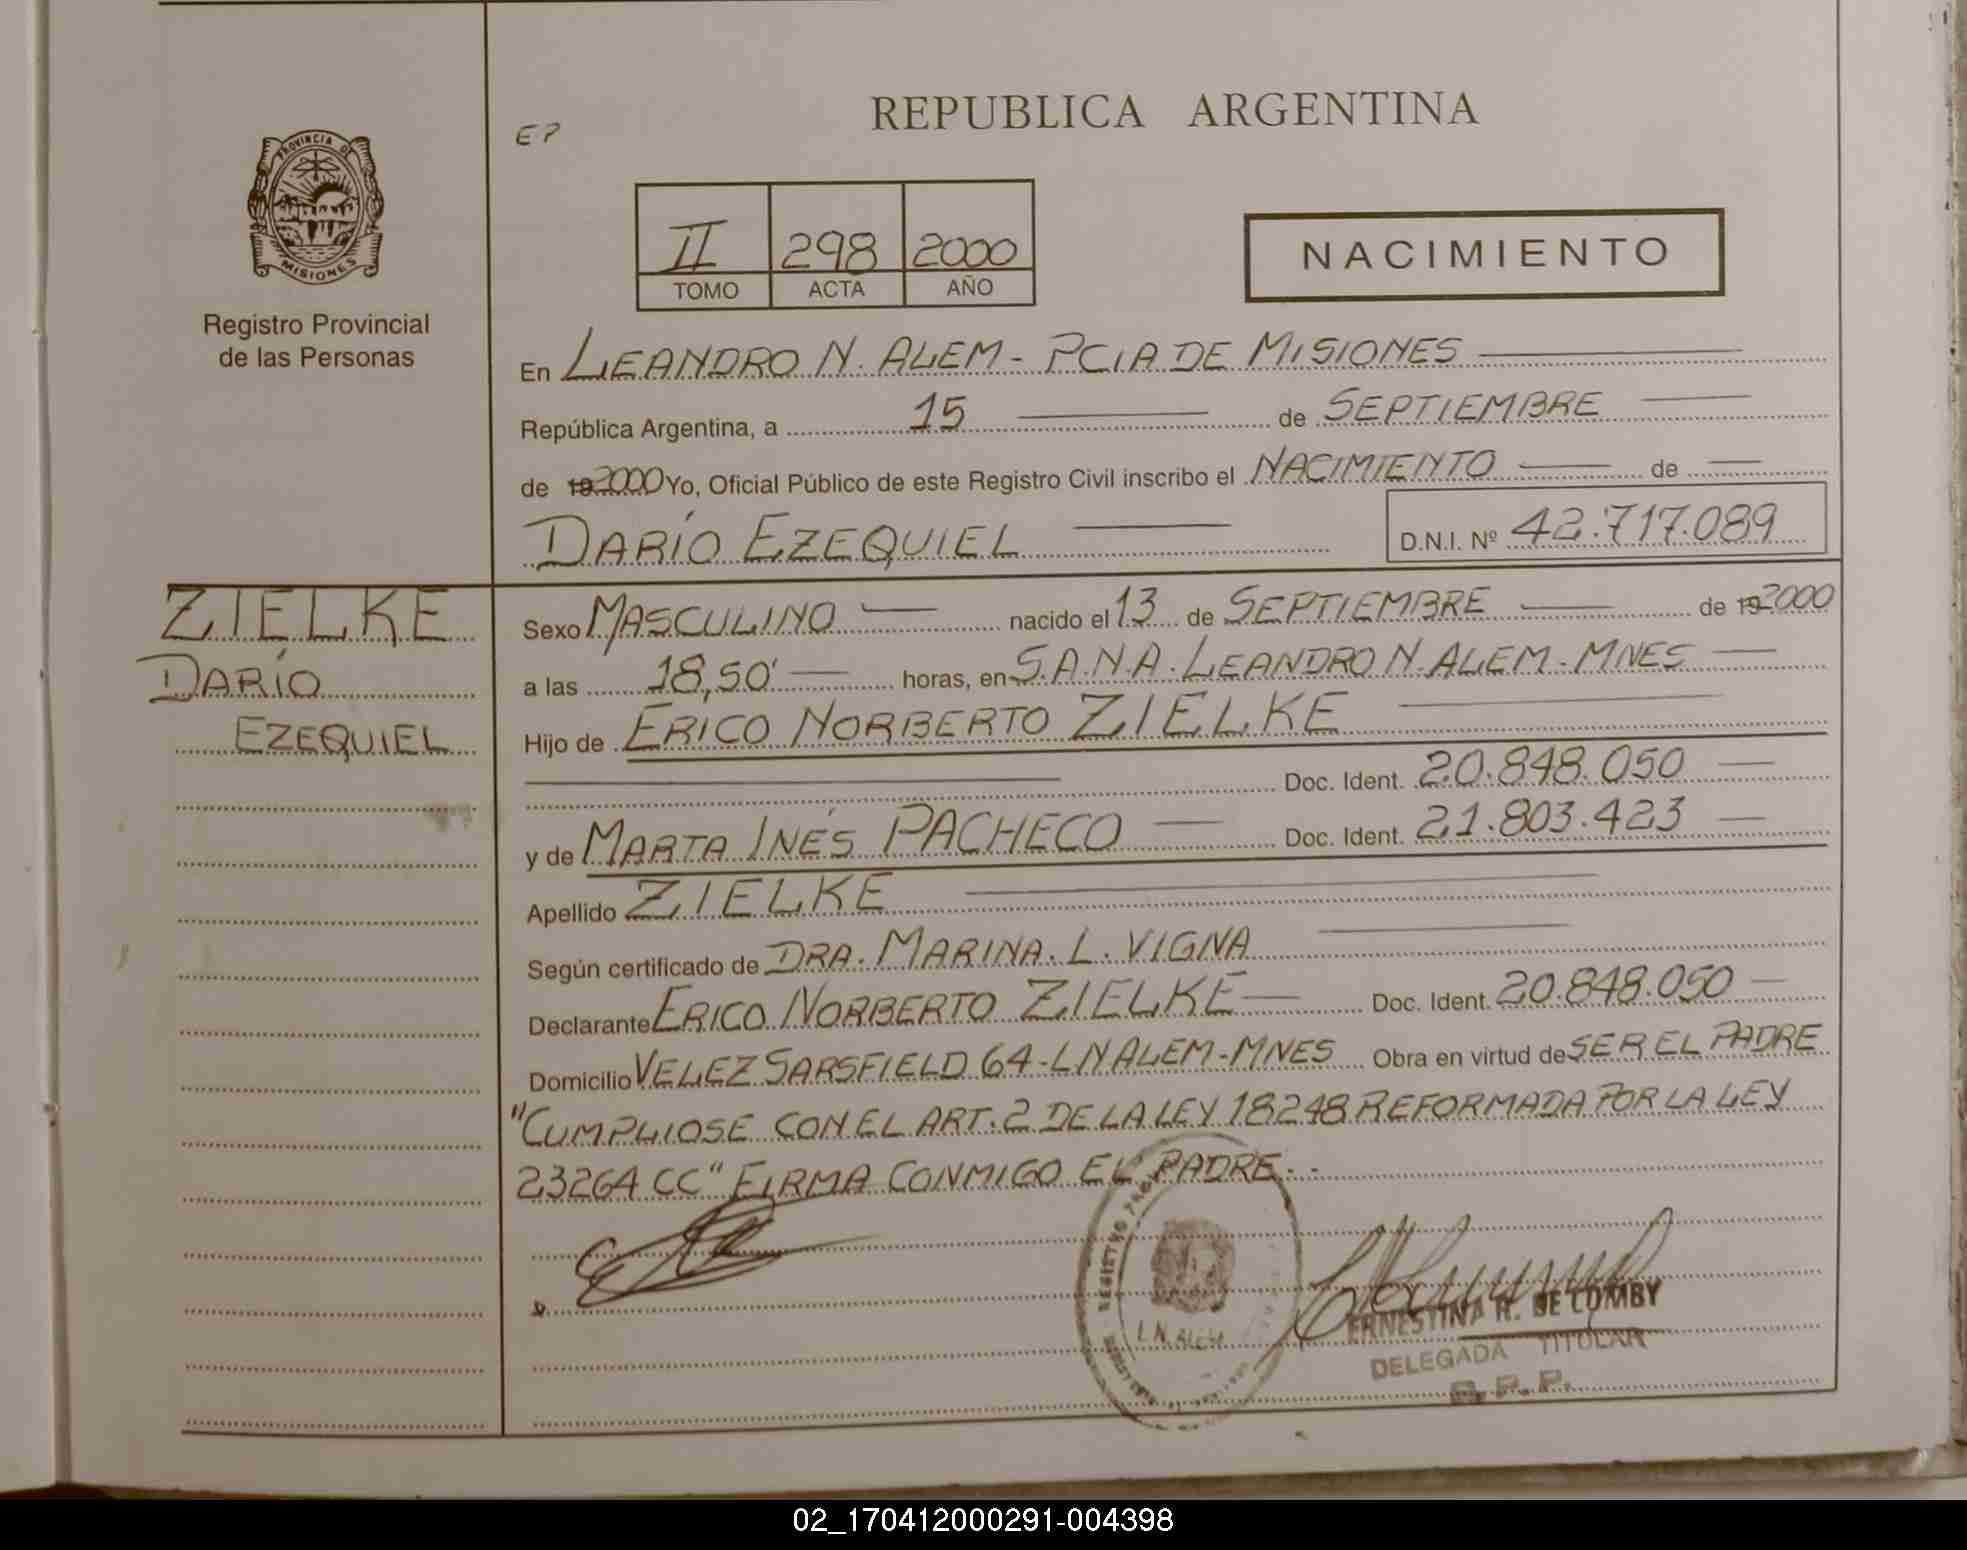 REPUBLICA ARGENTINA
E7
PROVINCIA DE
MISIONES
Registro Provincial
de las Personas
II 298 2000
TOMO ACTA AÑO
NACIMIENTO
En LEANDRO N. ALEM - PCIA DE MISIONES
República Argentina, a 15 de SEPTIEMBRE
de 19 2000 Yo, Oficial Público de este Registro Civil inscribo el NACIMIENTO de
DARÍO EZEQUIEL D.N.I. Nº 42.717.089
ZIELKE
DARÍO
EZEQUIEL
Sexo MASCULINO nacido el 13 de SEPTIEMBRE de 19 2000
a las 18,50' horas, en S.A.N.A. LEANDRO N. ALEM - MNES
Hijo de ERICO NORBERTO ZIELKE
Doc. Ident. 20.848.050
y de MARTA INÉS PACHECO Doc. Ident. 21.803.423
Apellido ZIELKE
Según certificado de DRA. MARINA. L. VIGNA
Declarante ERICO NORBERTO ZIELKE Doc. Ident. 20.848.050
Domicilio VELEZ SARSFIELD 64 - L N ALEM - MNES Obra en virtud de SER EL PADRE
"CUMPLIOSE CON EL ART. 2 DE LA LEY 18248 REFORMADA POR LA LEY
23264 CC" FIRMA CONMIGO EL PADRE. -
L.N. ALEM
ERNESTINA H. DE LOMBY
DELEGADA TITULAR
R. P. P.
02_170412000291-004398